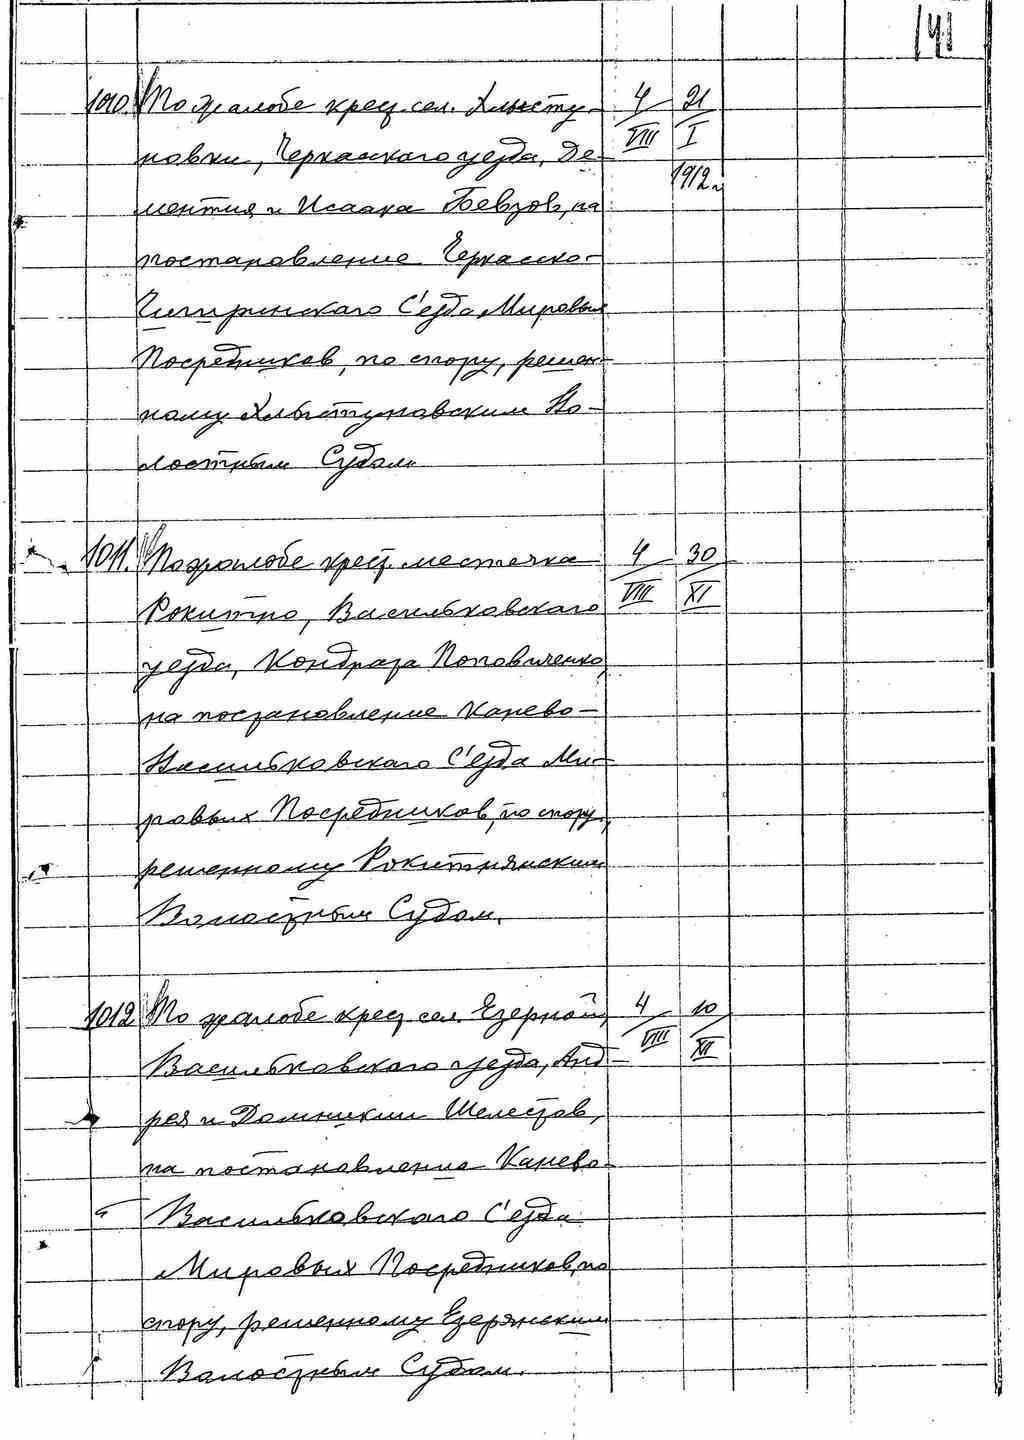 141
1010. По жалобе крест. сел. Хлысту- 4 21
новки, Черкасского уезда, Де- VIII I
ментия и Исаака Бевзов, на 1912 г.
постановление Черкасско-
Чигиринского С'езда Мировых
Посредников, по спору, решен-
ному Хлыстуновским Во-
лостным Судом.
1011. По жалобе крест. местечка 4 30
Рокитно, Васильковского VIII XI
уезда, Кондрата Поповиченко,
на постановление Канево-
Васильковского С'езда Ми-
ровых Посредников, по спору,
решенному Рокитнянским
Волостным Судом.
1012 По жалобе крест. сел. Езерной, 4 10
Васильковского уезда, Анд- VIII XII
рея и Домникии Шелестов,
на постановление Канево-
Васильковского С'езда
Мировых Посредников, по
спору, решенному Езерянским
Волостным Судом.